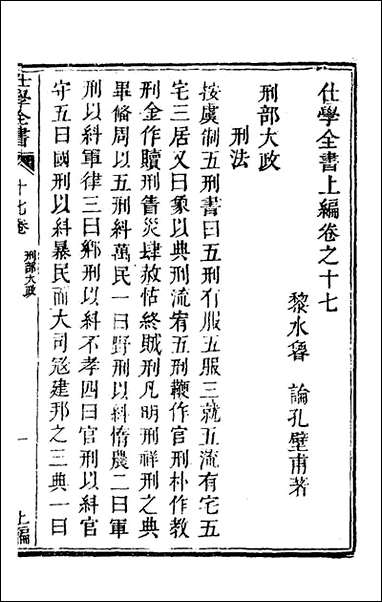 仕學全書上編卷之十七
黎水魯 論孔壁甫著
刑部大政
刑法
按虞制五刑書曰五刑有服五服三就五流有宅五
宅三居又曰象以典刑流宥五刑鞭作官刑朴作教
刑金作贖刑眚災肆赦怙終賊刑凡明刑祥刑之典
畢脩周以五刑糾萬民一曰野刑以糾惰農二曰軍
刑以糾軍律三曰鄉刑以糾不孝四曰官刑以糾官
守五曰國刑以糾暴民而大司寇建邦之三典一曰
仕學全書 十七卷 刑部大政 一 上編